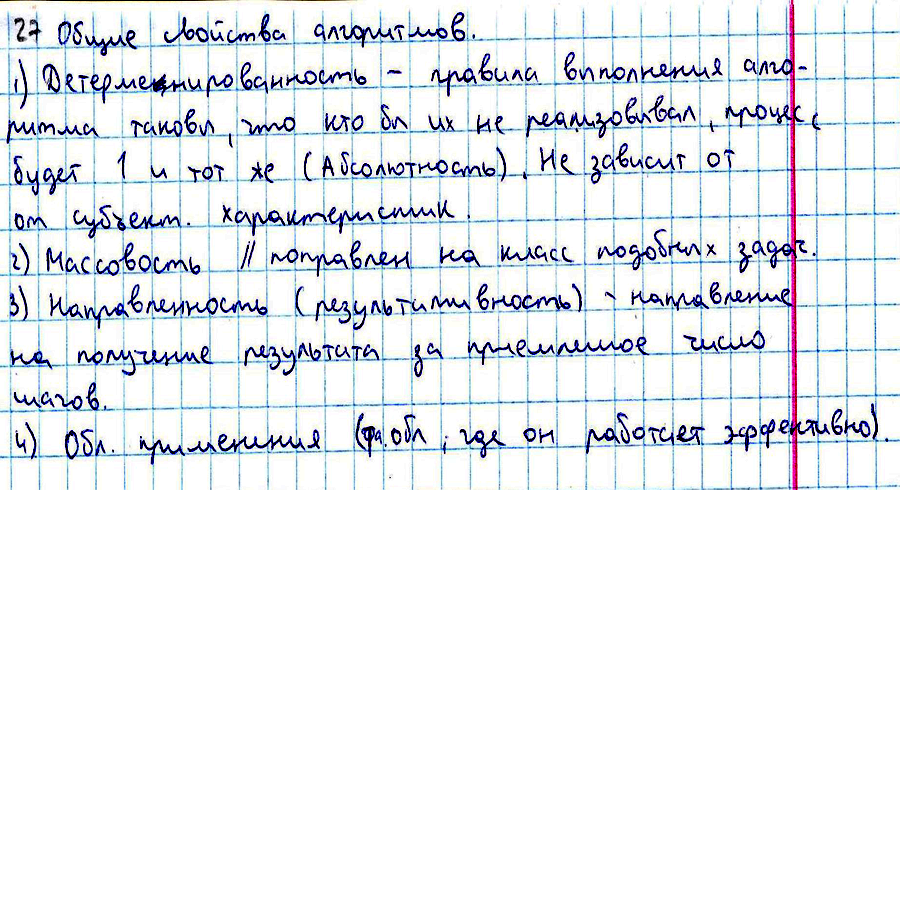 27 Общие свойства алгоритмов.
1) Детерменированность – правила выполнения алго-
ритма таковы, что кто бы их не реализовывал, процесс
будет 1 и тот же (Абсолютность). Не зависит от
от субъект. характеристик.
2) Массовость // поправлен на класс подобных задач.
3) Направленность (результативность) - направление
на получение результата за приемлемое число
шагов.
4) Обл. применения (та обл, где он работает эффективно).